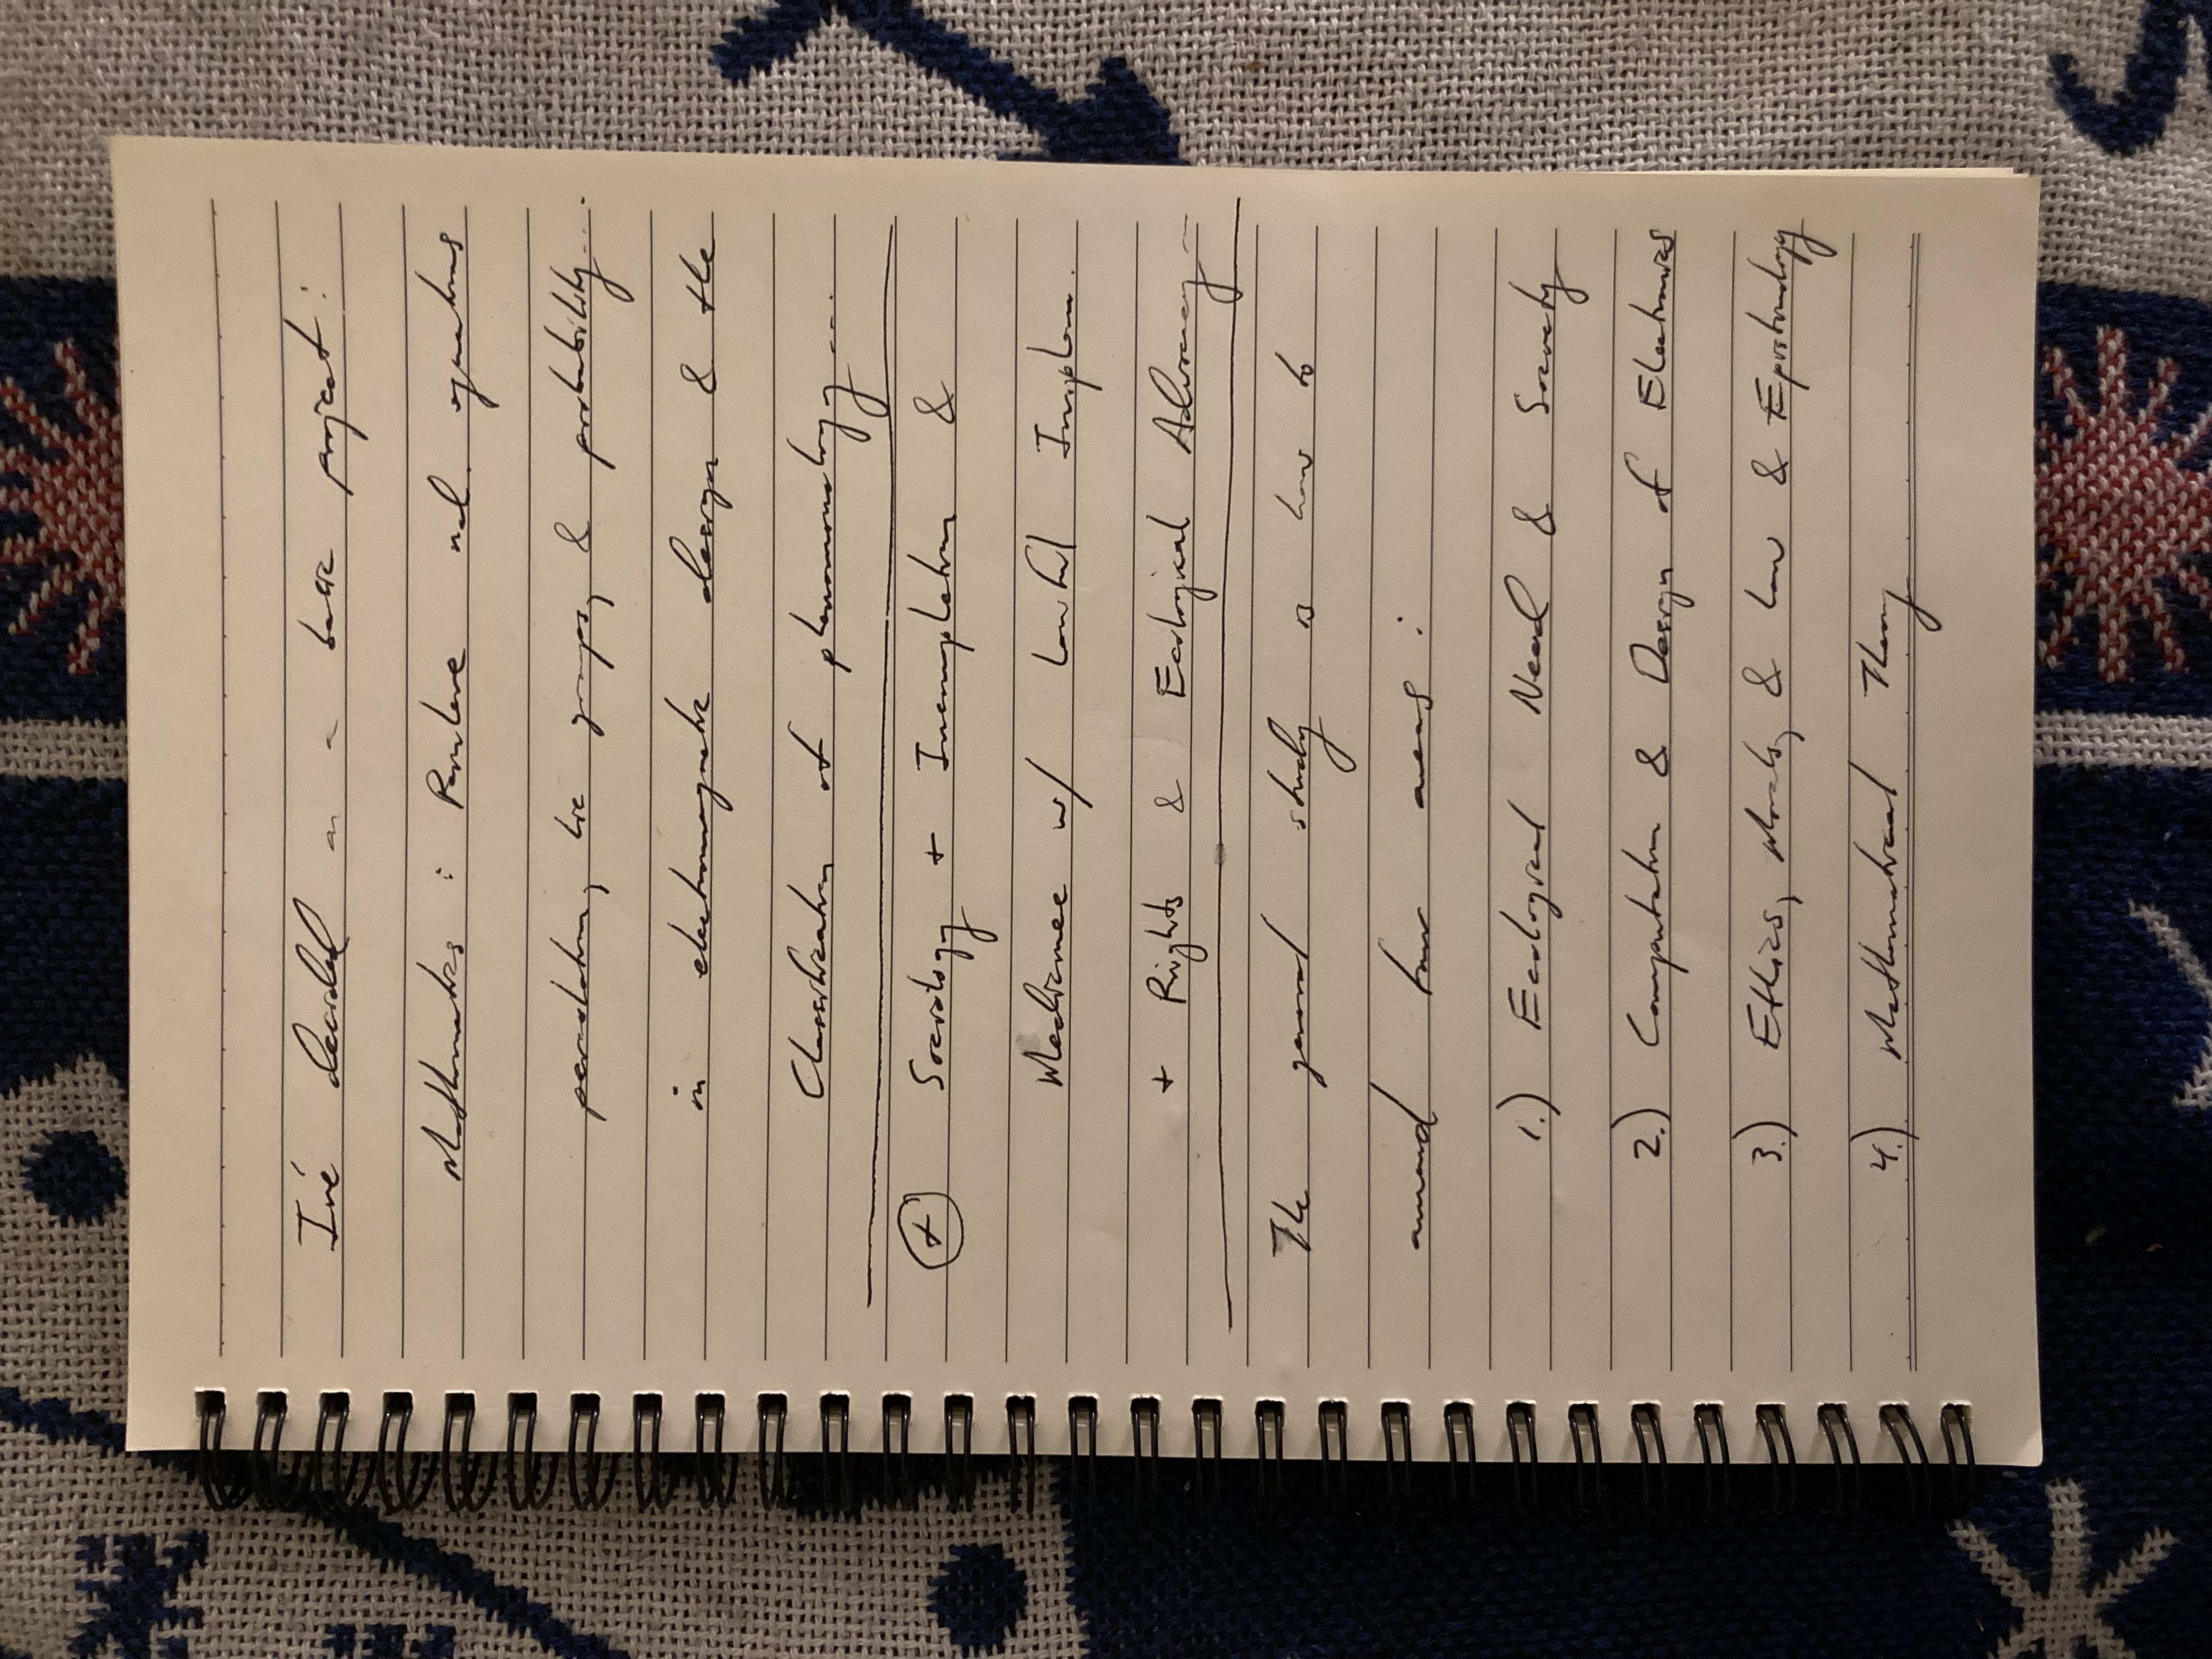 I've decided on a base project:
Mathematics: Painleve nal equations
percolation, lie groups, & probability....
in electromagnetic design & the
Classification of phenomenology....
(+) Sociology + Incompletion &
Mechanics w/ Lawful
+ Rights & Ecological Advocacy
The general study is how to
around four areas:
1.) Ecological Need & Society
2.) Computation & Design of Electronics
3.) Ethics, Morals, & Law & Epistemology
4.) Mathematical Theory